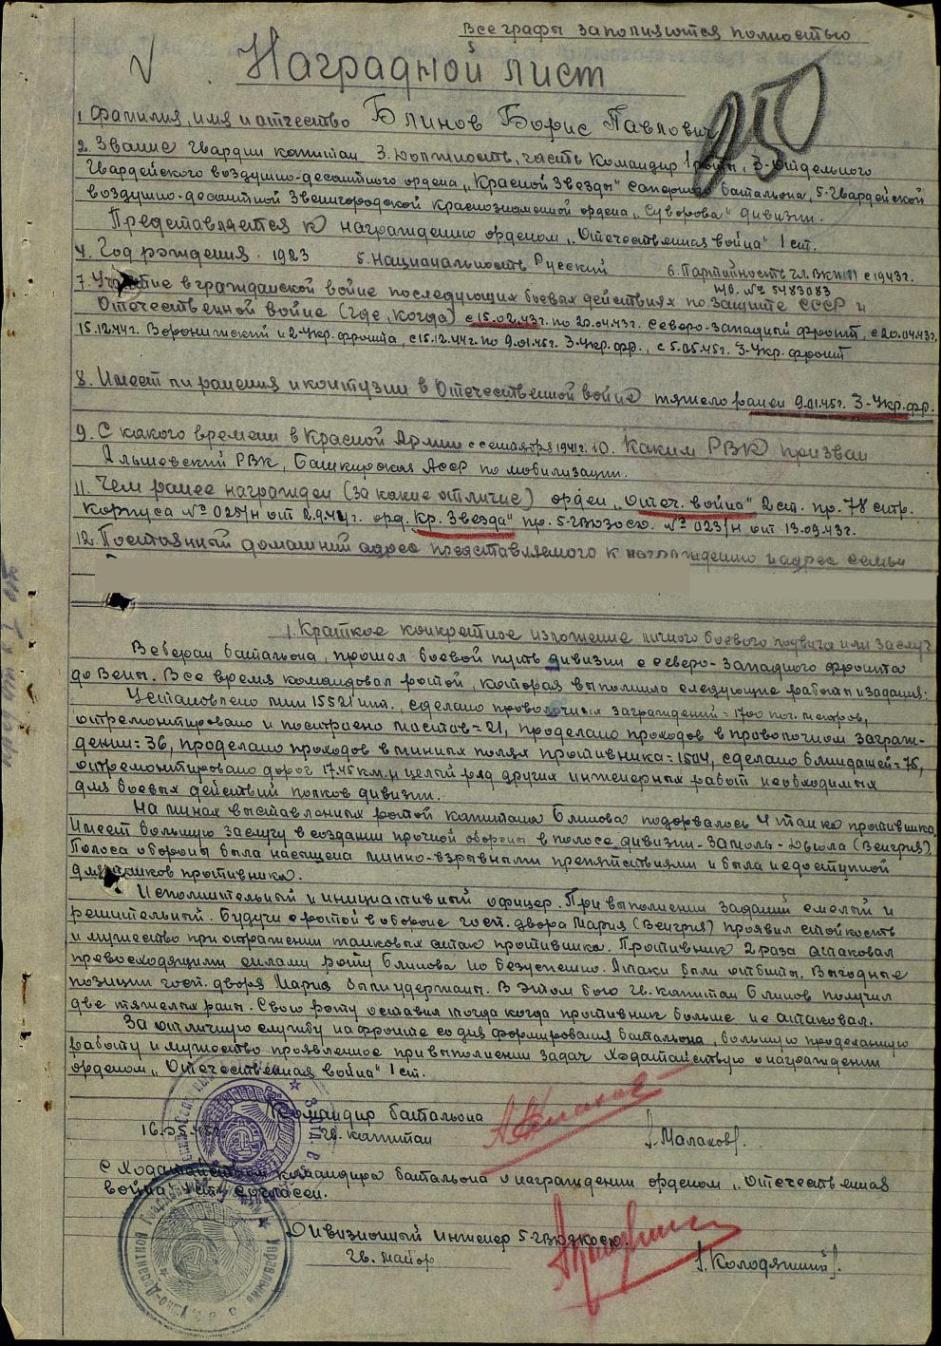 Все графы заполняются полностью
Наградной лист
250
1. Фамилия, имя и отчество Блинов Борис Павлович
2. Звание гвардии капитан 3. Должность, часть Командир 1 роты, 3-Отдельного
Гвардейского воздушно-десантного ордена „Красной Звезды" саперного батальона, 5-Гвардейской
воздушно-десантной Звенигородской Краснознаменной ордена „Суворова" дивизии.
Представляется к награждению орденом „Отечественная война" 1 ст.
4. Год рождения 1923 5. Национальность Русский 6. Партийность чл. ВКП(б) с 1943г.
№ 5483083
7. Участие в гражданской войне последующих боевых действиях по защите СССР и
Отечественной войне (где, когда) с 15.02.43г. по 20.04.43г. Северо-западный фронт, с 20.04.43г.
15.12.44г. Воронежский и 2-Укр. фронта, с 15.12.44г. по 9.01.45г. 3-Укр. фр., с 5.05.45г. 3-Укр. фронт
8. Имеет ли ранения и контузии в Отечественной войне тяжело ранен 9.01.45г. 3-Укр. фр.
9. С какого времени в Красной Армии с сентября 1941г. 10. Каким РВК призван
Альшеевский РВК, Башкирская АССР по мобилизации.
11. Чем ранее награжден (за какие отличие) орден „Отеч. война" 2 ст. пр. 78 стр.
Корпуса № 025/н от 2.9.44г. орд. „Кр. Звезда" пр. 5-гв № 023/н от 13.09.43г.
12. Постоянный домашний адрес представляемого к награждению и адрес семьи
1. Краткое конкретное изложение личного боевого подвига или заслуг
Ветеран батальона, прошел боевой путь дивизии с северо-западного фронта
до Вены. Все время командовал ротой, которая выполнила следующие работы и задания:
Установлено мин 15521 шт. сделано проволочных заграждений = 1700 пог. метров,
отремонтировано и построено мостов = 21, проделано проходов в проволочном заграж-
дении = 36, проделано проходов в минных полях противника = 1504, сделано блиндажей = 75,
отремонтировано дорог 17.45 км. и целый ряд других инженерных работ необходимых
для боевых действий полков дивизии.
На минах выставленных ротой капитана Блинова подорвалось 4 танка противника,
Имеет большую заслугу в создании прочной обороны в полосе дивизии - Замоль - Дьюла (Венгрия)
Полоса обороны была насыщена минно-взрывными препятствиями и была недоступной
для танков противника.
Исполнительный и инициативный офицер. При выполнении заданий смелый и
решительный. Будучи с ротой в обороне гост. двора Мария (Венгрия) проявил стойкость
и мужество при отражении танковых атак противника. Противник 2 раза атаковал
превосходящими силами роту Блинова но безуспешно. Атаки были отбиты, Выгодные
позиции гост. двора Мария были удержаны. В этом бою гв. капитан Блинов получил
две тяжелых раны. Свою роту оставил тогда когда противник больше не атаковал.
За отличную службу на фронте со дня формирования батальона, большую проделанную
работу и мужество проявленное при выполнении задач ходатайствую о награждении
орденом „Отечественная война" 1 ст.
Командир батальона
16.05.45г. Гв. капитан /Малахов/.
С ходатайством командира батальона о награждении орденом „Отечественная
война" 1 ст. согласен.
Дивизионный инженер 5-гввдкзсд.
Гв. майор /Колодяжный/.